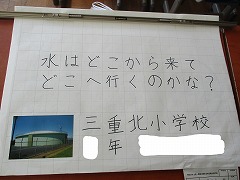 水はどこから来て
どこへ行くのかな?
三重北小学校
年